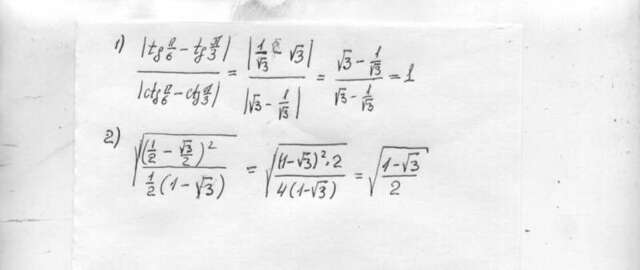 1) |tg π/6 − tg π/3| / |ctg π/6 − ctg π/3| = |1/√3 − √3| / |√3 − 1/√3| = (√3 − 1/√3) / (√3 − 1/√3) = 1
2) √((1/2 − √3/2)² / (1/2 (1 − √3))) = √((1−√3)²·2 / (4(1−√3))) = √((1−√3) / 2)